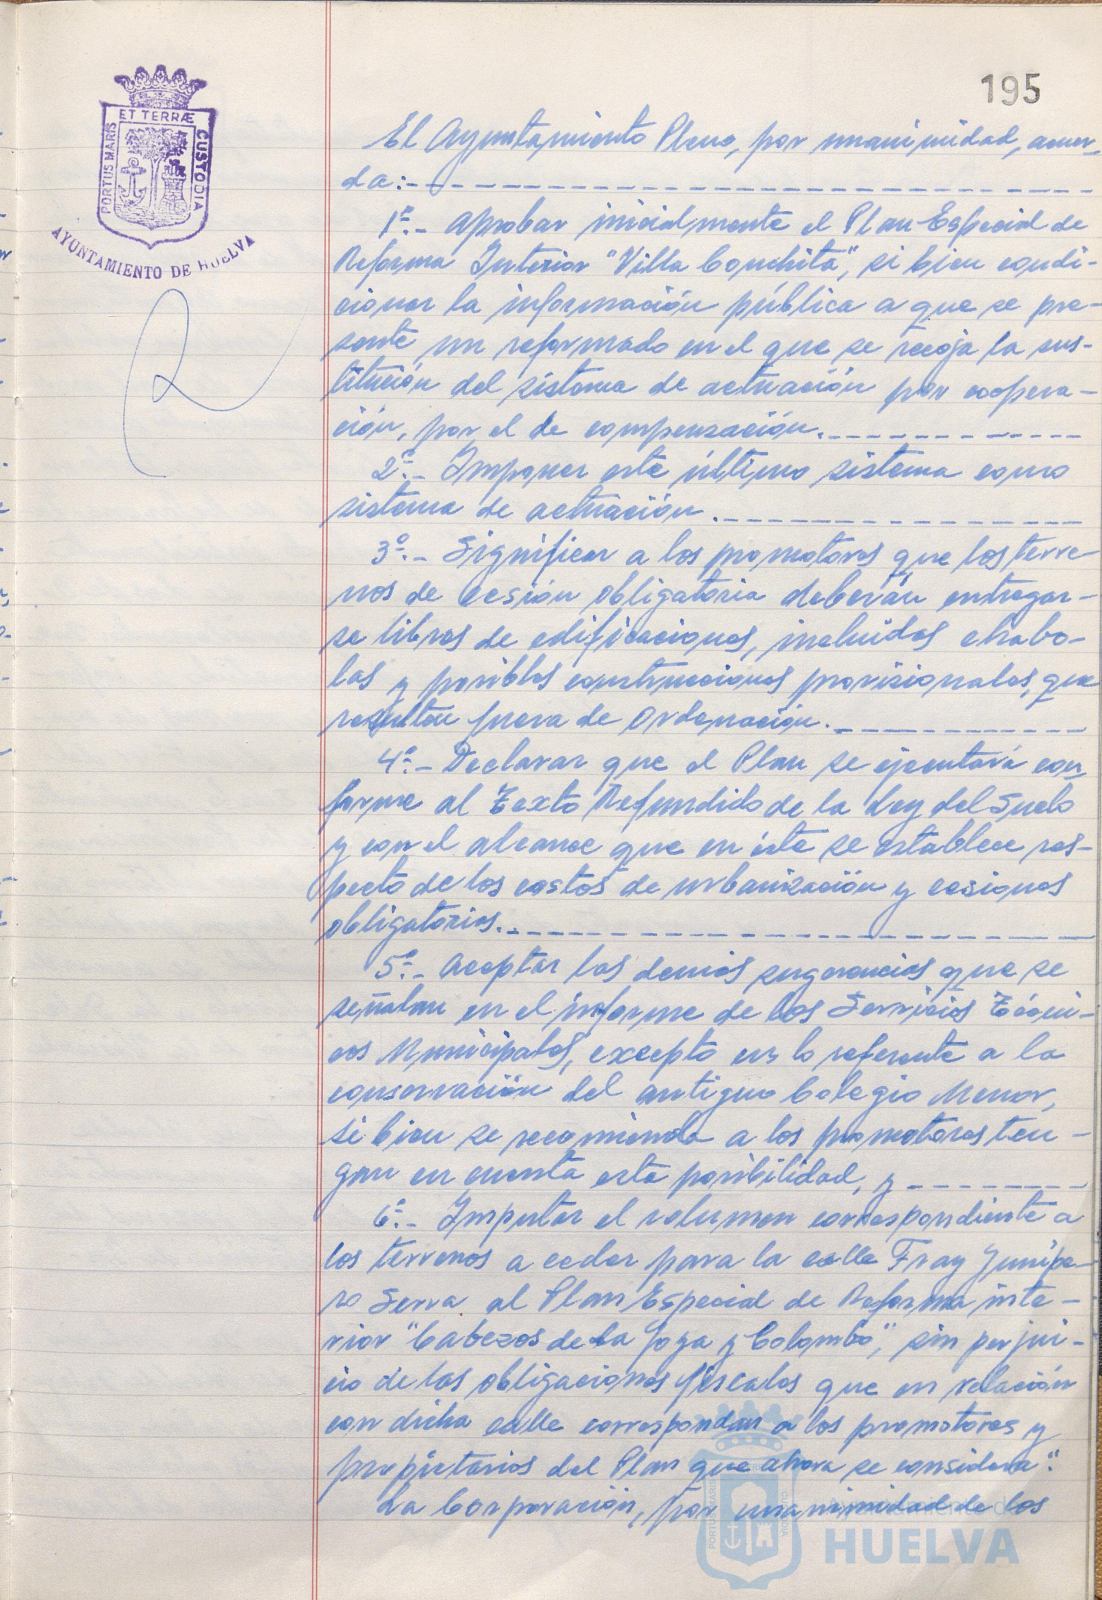 195
PORTUS MARIS ET TERRÆ CUSTODIA
AYUNTAMIENTO DE HUELVA
El Ayuntamiento Pleno, por unanimidad, acuer-
da:-
1º.- Aprobar inicialmente el Plan Especial de
Reforma Interior "Villa Conchita", si bien condi-
cionar la información pública a que se pre-
sente un reformado en el que se recoja la sus-
titución del sistema de actuación por coopera-
ción, por el de compensación.
2º.- Imponer este último sistema como
sistema de actuación.
3º.- Significar a los promotores que los terre
nos de cesión obligatoria deberán entregar-
se libres de edificaciones, incluidas chabo-
las y posibles construcciones provisionales, que
resulten fuera de Ordenación.
4º.- Declarar que el Plan se ejecutará con
forme al Texto Refundido de la Ley del Suelo
y con el alcance que en éste se establece res-
pecto de los costos de urbanización y cesiones
obligatorias.
5º.- Aceptar las demás sugerencias que se
señalan en el informe de los Servicios Técni-
cos Municipales, excepto en lo referente a la
conservación del antiguo Colegio Menor,
si bien se recomienda a los promotores ten-
gan en cuenta esta posibilidad, y
6º.- Imputar el volumen correspondiente a
los terrenos a ceder para la calle Fray Junípe-
ro Serra al Plan Especial de Reforma inte-
rior "Cabezos de la Joya y Colombo", sin perjui-
cio de las obligaciones fiscales que en relación
con dicha calle correspondan a los promotores y
propietarios del Plan que ahora se considera".
La Corporación, por unanimidad de los
Ayuntamiento de
HUELVA